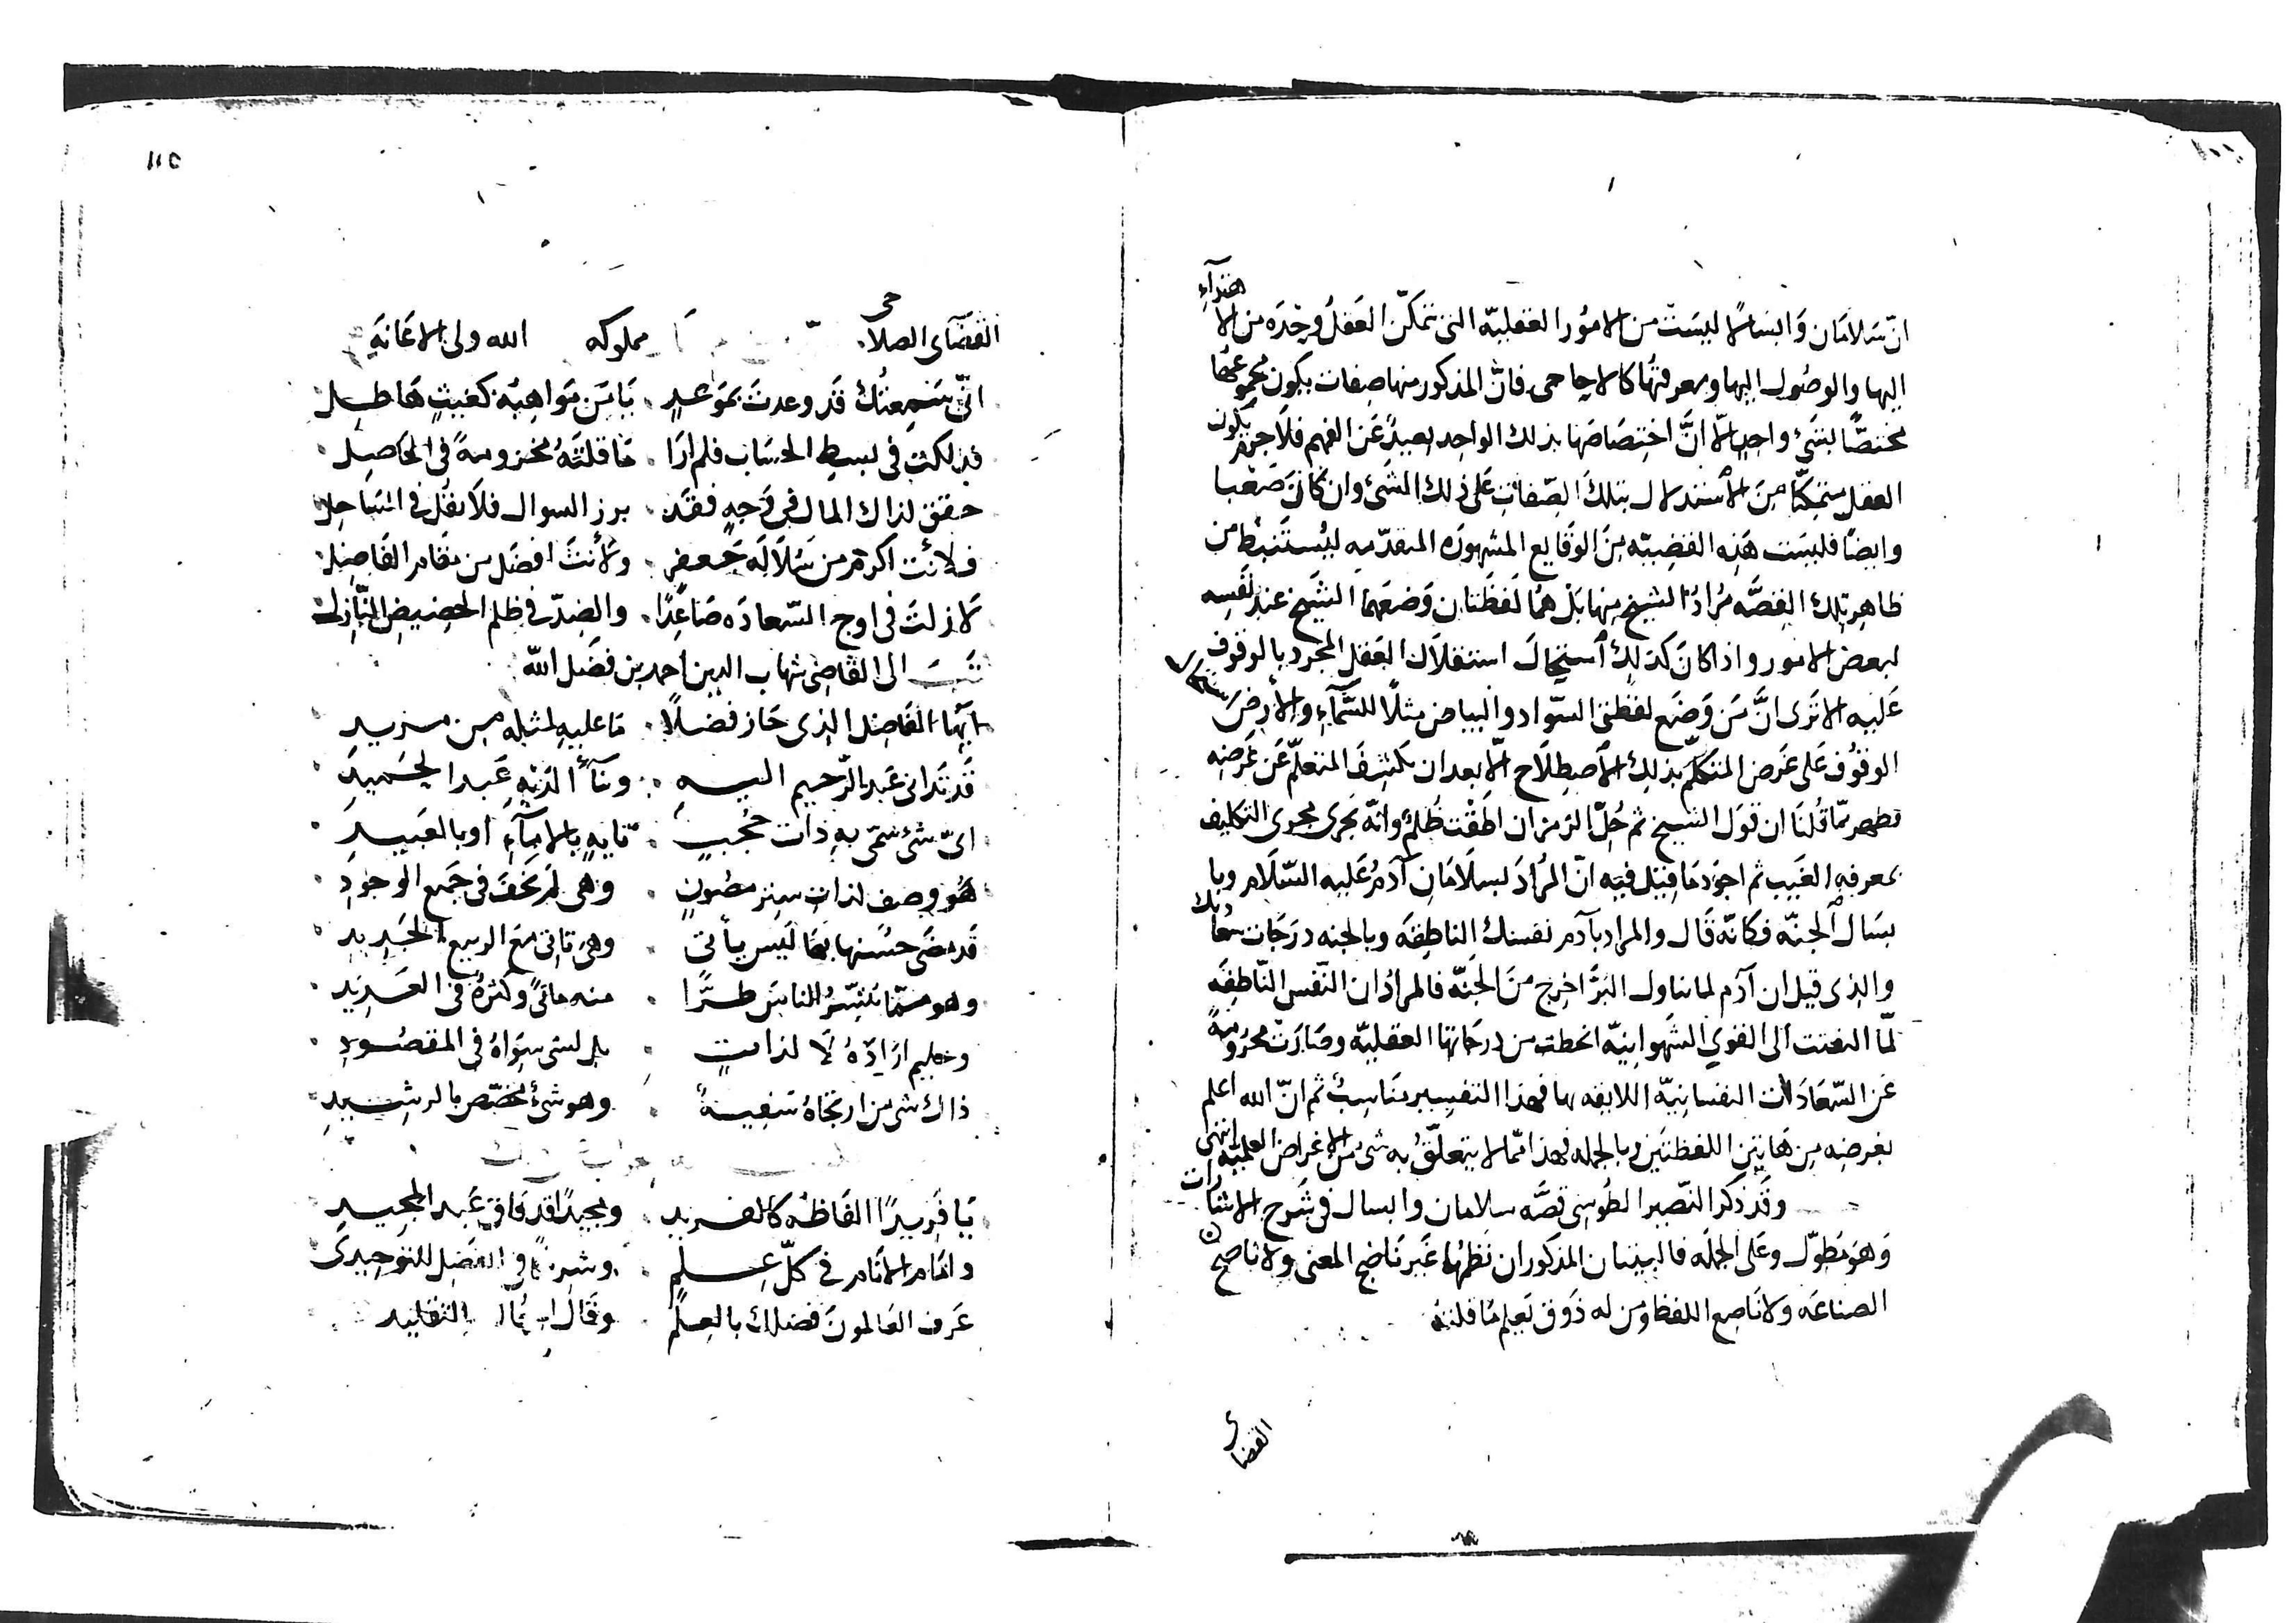 انّ سَلامَان وَابسَالًا ليسَتْ من الامُور العقليّه التى يتمكّن العَقلُ وحْدَه من الاهتدآءِ
اليها والوصُول اليها ومعرفتهَا كالاحاجى فانَّ المذكور منها صِفات يكون مجموعُهَا
مختصًّا بشَىْءٍ واحدٍ الّا انَّ اختِصَاصَها بذلك الواحِد بعيدٌ عَن الفهم فلا جرَم يكون
العقل متمكّنًا مِنَ الاستدلال بتلكَ الصِّفاتِ عَلى ذلك الشَىْءِ وان كانَ صَعْبا
وايضًا فليسَت هَذِه القضيّه مِنَ الوقَايع المشهورَه المتقدّمه ليُستَنبط من
ظاهِرِ تلك القِصَّه مُرادُ الشيخ منها بَلْ هُمَا لَفظَتان وَضَعَهمَا الشَيخ عند نَفسِه
لبعض الامور واذا كانَ كذلِكَ استحَالَ استقلالُ العَقلِ المجرد بالوقوف
عَليه الا تَرى انَّ مَن وَضَع لفظتى السّواد والبياض مثلًا للسَّمآءِ والارض استحال
الوقوُف عَلى غَرض المتكلّم بذلِكَ الاصطِلَاح الّا بعد ان يكشِفَ المتعلّم عَن غَرَضِه
فظهر ممّا قُلنَا ان قول الشيخ ثم حُلّ الرّمز ان اطَقْت ظُلمٌ وانّه يَجرى مجرى التكليف
بمعرفه الغَيب ثم اجوَد مَا قيْل فيه انّ المُرادَ بسلَامَانِ آدَمُ عَليه السّلَام وبا
بسَال الجنّه فكانّه قَال والمراد بآدم نفسك الناطِقَه وبالجنه درَجَات سعادتك
والذى قيل ان آدَم لما تناول البُرَّ اخرِج مِنَ الجَنّه فالمرادُ ان النّفس النّاطِقَه
لمّا التفتت الى القوى الشَهوانيّه انحطت من درجَاتها العقليّه وصَارَتْ محرُومةً
عَن السّعَادَات النفسانيّه اللايقه بها فهَذا التفسِير مناسِبٌ ثم انّ الله اعلم
بغرضِه مِن هَاتين اللفظتَين وبالجمله فهذا ممّا لا يتعلّقُ به شىْ من الاغراض العلميّه انتهى
وقَد ذكر النّصير الطُوسِى قصّه سلامان وابسال فى شَرح الاشارات
وَهوَ مطَوّل وعَلى الجملَه فالبيتان المذكوران نَظمُهَا غَير نَاضِج المعنى ولا ناصح
الصناعَه ولا نَاصِع اللفظ ومَن له ذَوق يَعلم مَا قلتهُ
القضاى
١١٥
القضَآى الصلاحى مملوكه الله ولى الاعَانَه
انّى سَمِعتُكَ قَد وعدتَ بمَوعدٍ . يَا مَن مَوَاهِبُه كغيثٍ هَاطِلِ
فذلكتُ فى بسيطِ الحسَاب فلم ارَا . مَا قلتَهُ مخزومةً فى الحَاصِلِ
حقق لذاك المال فى وَجهٍ فقد . برز السوال فلا يقُل فى السَاحل
فلأنت اكرَم من سُلَالَه جَعفرٍ . ولأنتَ افضَل من مقَام الفَاضِلِ
لا زلتَ فى اوج السّعادَه صَاعِدًا . والضِدّ فى ظلم الحضِيضِ النّازِلِ
كتبتَ الى القَاضِى شهاب الدين احمد بن فضَل الله
ايّها الفَاضِل الذى حَاز فضلًا . مَا عليهِ لمثلِه مِن مزيدِ
قَد تدَانى عَبد الرّحيم اليهِ . وتنآءَا لدَيْهِ عَبد الحَميدِ
اىّ شىْءٍ سُمّى به ذات حُجبٍ . تايهٍ بالامآءِ او بالعَبيدِ
هُو وصف لذاتِ سِترٍ مصُونٍ . وهى لَم تخفَ فى جَميع الوجودِ
قَد مضَى حسُنها بمَا لَيس ياْتى . وهى تاتى مَعَ الربيع الجَديدِ
وهو ممّا تبشّرُ النَاسَ طُرًّا . منه مَاتىً وكثرةٌ فى العَديد
وحَليم ارَادَهُ لَا لذاتٍ . بل لشى سِوَاهُ فى المقصُودِ
ذاك شى من ارتجَاهُ سَفِيهٌ . وهو شىْءٌ مخصّص بالرشيدِ
جواب ذلك
يَا فَريدًا الفَاظُه كالفريدِ . ومجيدًا قد فَاق عَبد المجيدِ
وامَام الانَام فى كلّ عِلمٍ . وشريكًا فى الفضل للتوحيدى
عَرف العَالمونَ فضلك بالعِلم . وقَالَ التقليد